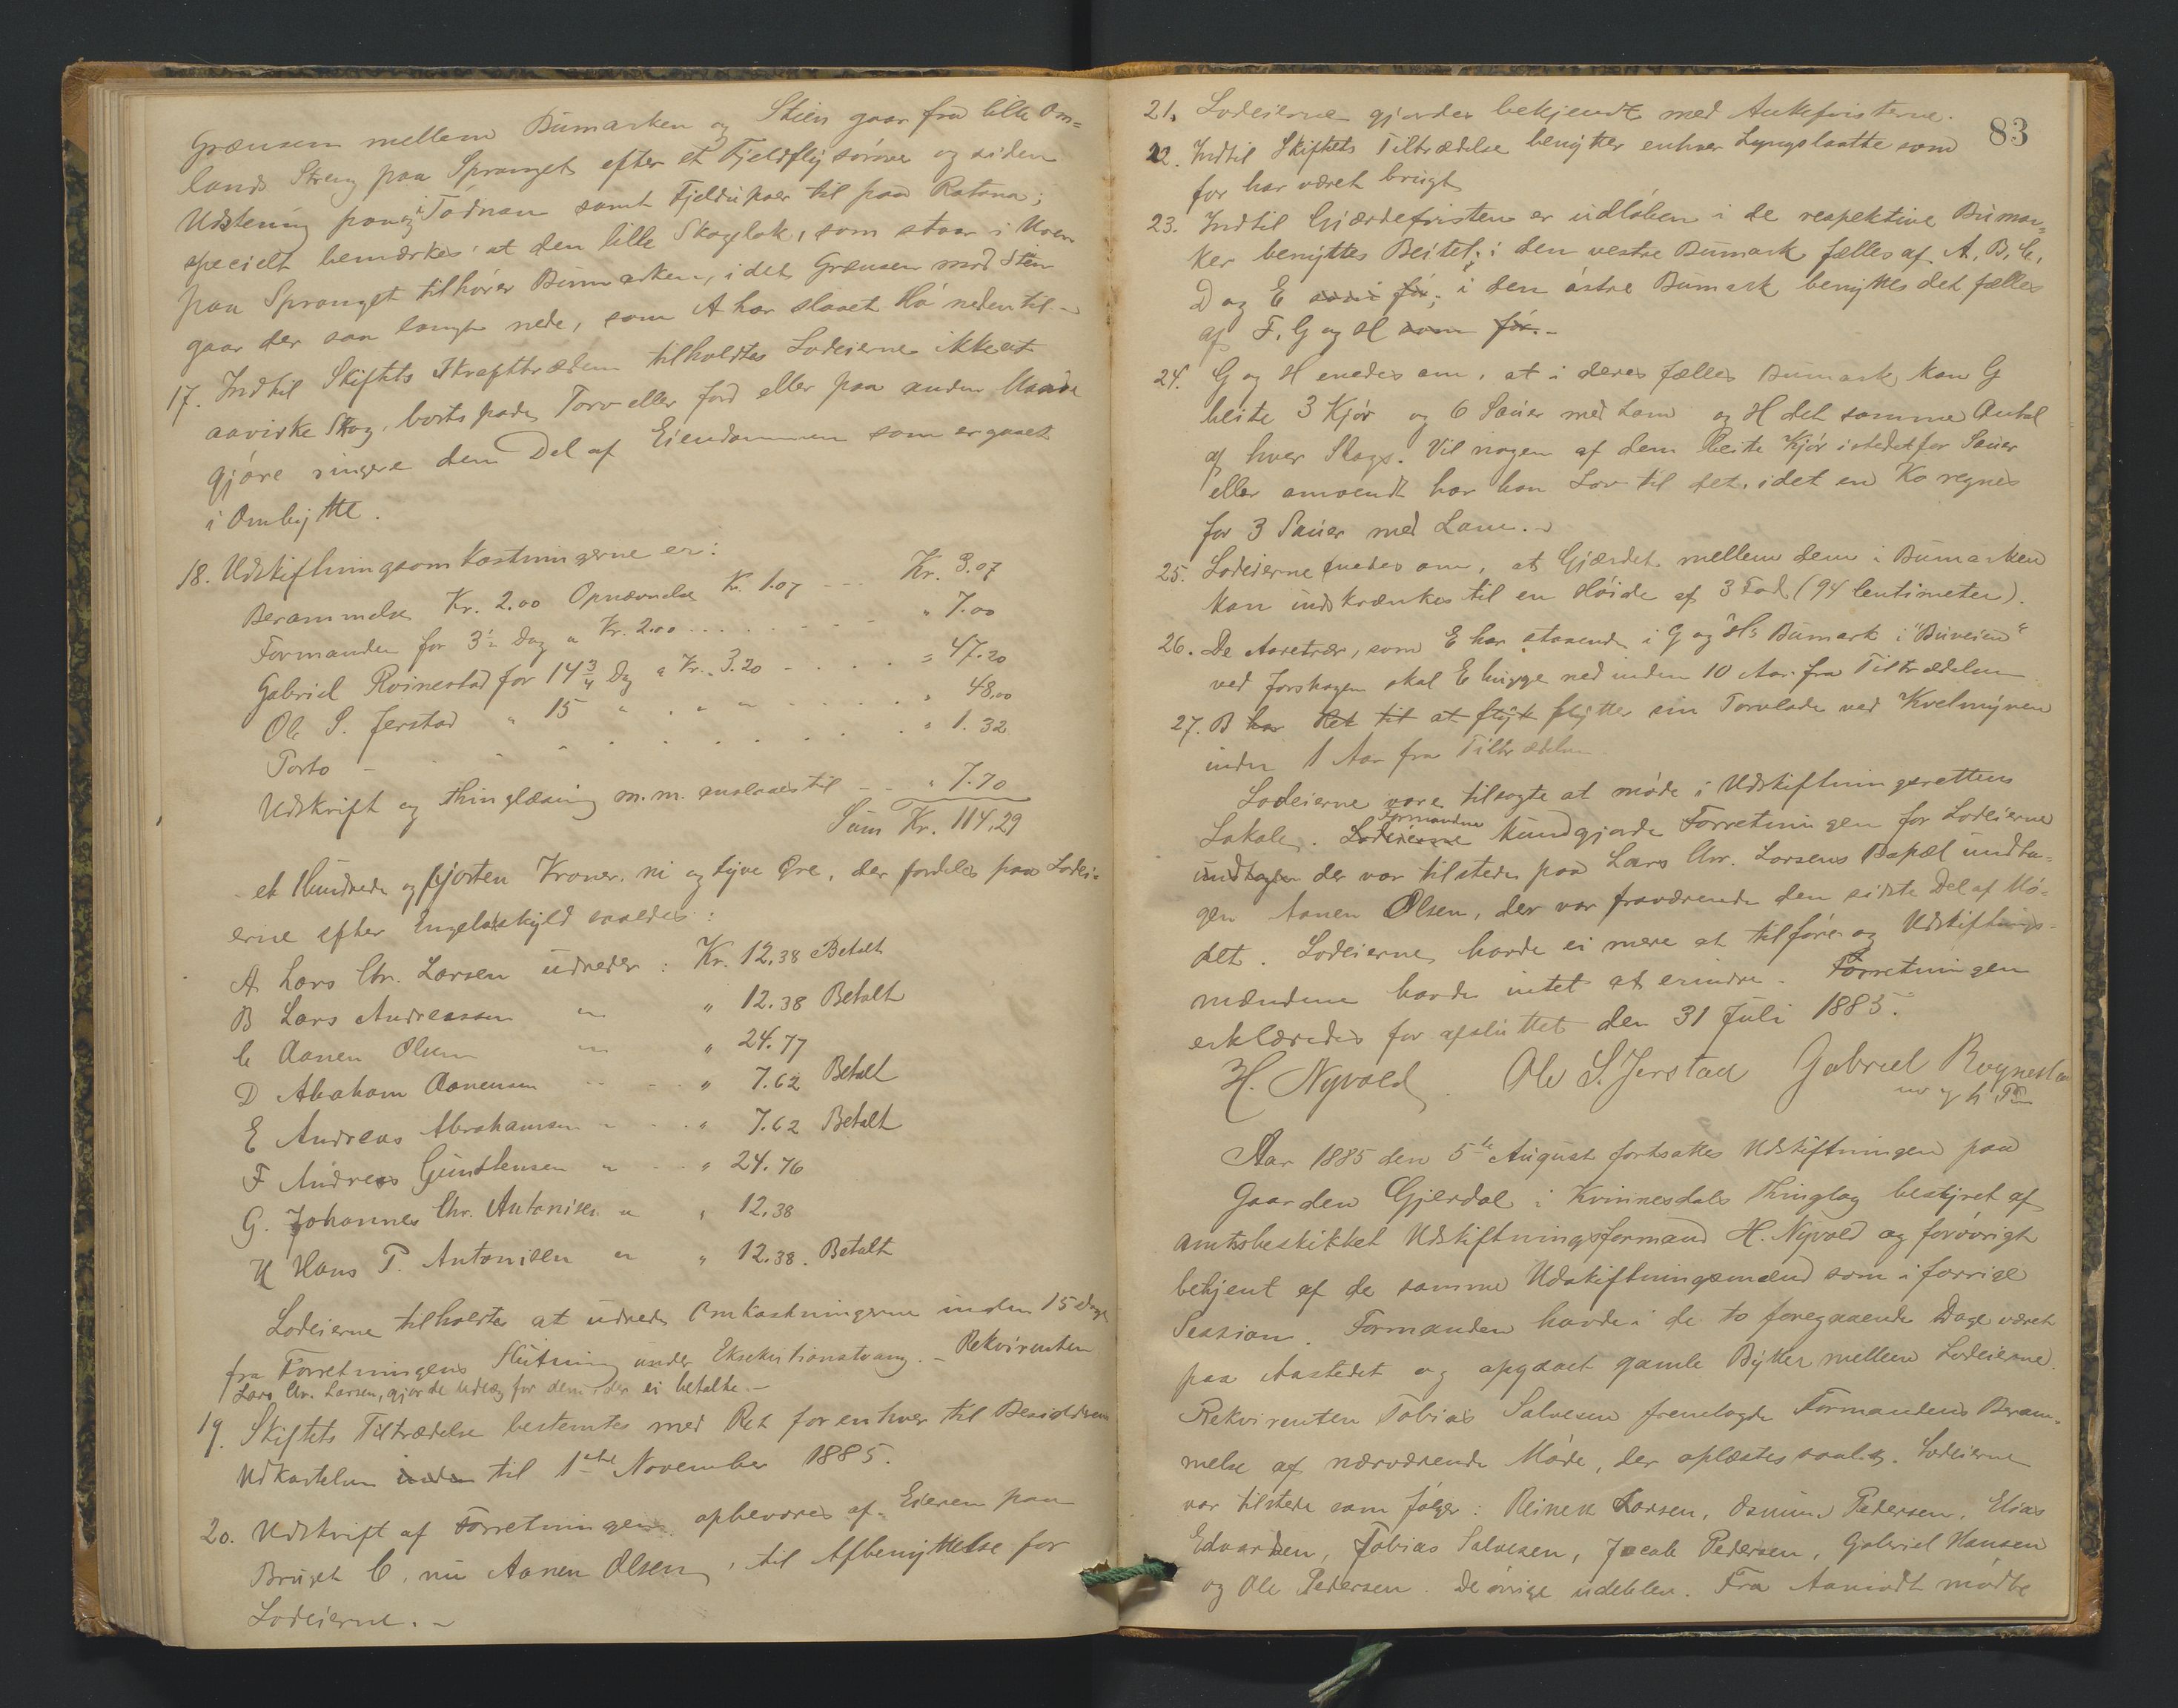 Grænsen mellem Bumarken og Stien gaar fra lille Om=
lands Streng paa Spranget efter et Fjeldfly sörover og siden
Udstening paa og i Tødnan samt Fjeldnper til paa Ratana;
specielt bemærkes at den lille Skoglok, som staar i Uren
paa Spranget tilhörer Bumarken, idet Grænsen mod Stien
gaar der saa langt nede, som A har slaaet Hö nedentil –
17. Indtil Skiftets Ikrafttræden tilholdtes Lodeierne ikke at
aavirke Skog, bortspade Torv eller Jord eller paa anden Maade
gjöre ringere den Del af Eiendommen som er gaaet
i Ombytte.
18. Udskiftningsomkostningerne er:
Berammelse Kr. 2.00 Opnævnelse Kr. 1.07 --- Kr. 3.07
Formanden for 3½ Dag a Kr. 2.00 . . . . . . „ 7.00
Gabriel Roinestad for 14¾ Dag a Kr. 3.20 - . . . = 47.20
Ole S. Jerstad „ 15 „ „ „ „ . . . . „ 48.00
Porto - . . . . . . . . . „ 1.32
Udskrift og Thinglæsning m.m. anslaaes til - - „ 7.70
Sum Kr. 114,29
- et Hundrede og fjorten Kroner ni og tyve Øre, der fordeles paa Lodei=
erne efter Engelsskyld saaledes:
A Lars Chr. Larsen udreder : Kr. 12,38 Betalt
B Lars Andreassen „ „ 12.38 Betalt
C Aanen Olsen „ „ 24.77
D Abraham Aanensen - - - „ 7.62 Betalt
E Andreas Abrahamsen „ - . „ 7.62 Betalt
F Andreas Gundtensen „ - . „ 24.76
G. Johannes Chr. Antonisen „ „ 12.38
H Hans P. Antonisen „ „ 12.38. Betalt
Lodeierne tilholdtes at udrede Omkostningerne inden 15 Dage
fra Forretningens Slutning under Eksekutionstvang. – Rekvirenten
Lars Chr. Larsen, gjorde Udlæg for dem der ei betalte. –
19. Skiftets Tiltrædelse bestemtes med Ret for enhver til Besiddelsen
Udkastelsen inden til 1ste November 1885.
20. Udskrift af Forretningen opbevares af Eieren paa
Bruget C, nu Aanen Olsen, til Afbenyttelse for
Lodeierne. –
83
21. Lodeierne gjordes bekjendt med Ankefristerne.
22. Indtil Skiftets Tiltrædelse benytter enhver Lyngslaatte som
för har været brugt
23. Indtil Gjærdefristen er udlöben i de respektive Bumar=
ker benyttes Beitet i den vestre Bumark fælles af A, B, C,
D og E som för; i den östre Bumark benyttes det fælles
af F, G og H som för. –
24. G og H enedes om, at i deres fælles Bumark kan G
beite 3 Kjör og 6 Sauer med Lam og H det samme Antal
af hver Slags. Vil nogen af dem beite Kjör istedetfor Sauer
eller omvendt har han Lov til det, idet en Ko regnes
for 3 Sauer med Lam. –
25. Lodeierne enedes om, at Gjærdet mellem dem i Bumarken
kan indskrænkes til en Höide af 3 Fod (94 Centimeter).
26. De Aaretrær, som E har staaende i G og H's Bumark i "Buveien"
ved Forskagen skal E hugge ned inden 10 Aar fra Tiltrædelsen
27. B har Ret til at flytt flytter sin Torvlade ved Kvelmyren
inden 1 Aar fra Tiltrædelsen.
Lodeierne vare tilsagte at møde i Udskiftningsrettens
Lokale. Lodeierne Formanden kundgjorde Forretningen for Lodeierne
undtagen der var tilstede paa Lars Chr. Larsens Bopæl undta=
gen Aanen Olsen, der var fraværende den sidste Del af Mö=
det. Lodeierne havde ei mere at tilföre og Udskiftnings-
mændene havde intet at erindre. Forretningen
erklæredes for afsluttet den 31 Juli 1885.
H. Nyvold Ole S. Jerstad Gabriel Roynestad
m h P
Aar 1885 den 5te August fortsattes Udskiftningen paa
Gaarden Gjerdal i Kvinnesdals Thinglag bestyret af
amtsbeskikket Udskiftningsformand H. Nyvold og forövrigt
betjent af de samme Udskiftningsmænd som i forrige
Session. Formanden havde i de to foregaaende Dage været
paa Aastedet og opgaaet gamle Bytter mellem Lodeierne.
Rekvirenten Tobias Salvesen fremlagde Formandens Beram=
melse af nærværende Möde, der oplæstes saal. Lodeierne
var tilstede som fölger: Reinert Larsen, Osmund Pedersen, Elias
Edvardsen, Tobias Salvesen, Jacob Pedersen, Gabriel Hansen
og Ole Pedersen. De övrige udebleve. Fra Aamodt mödte